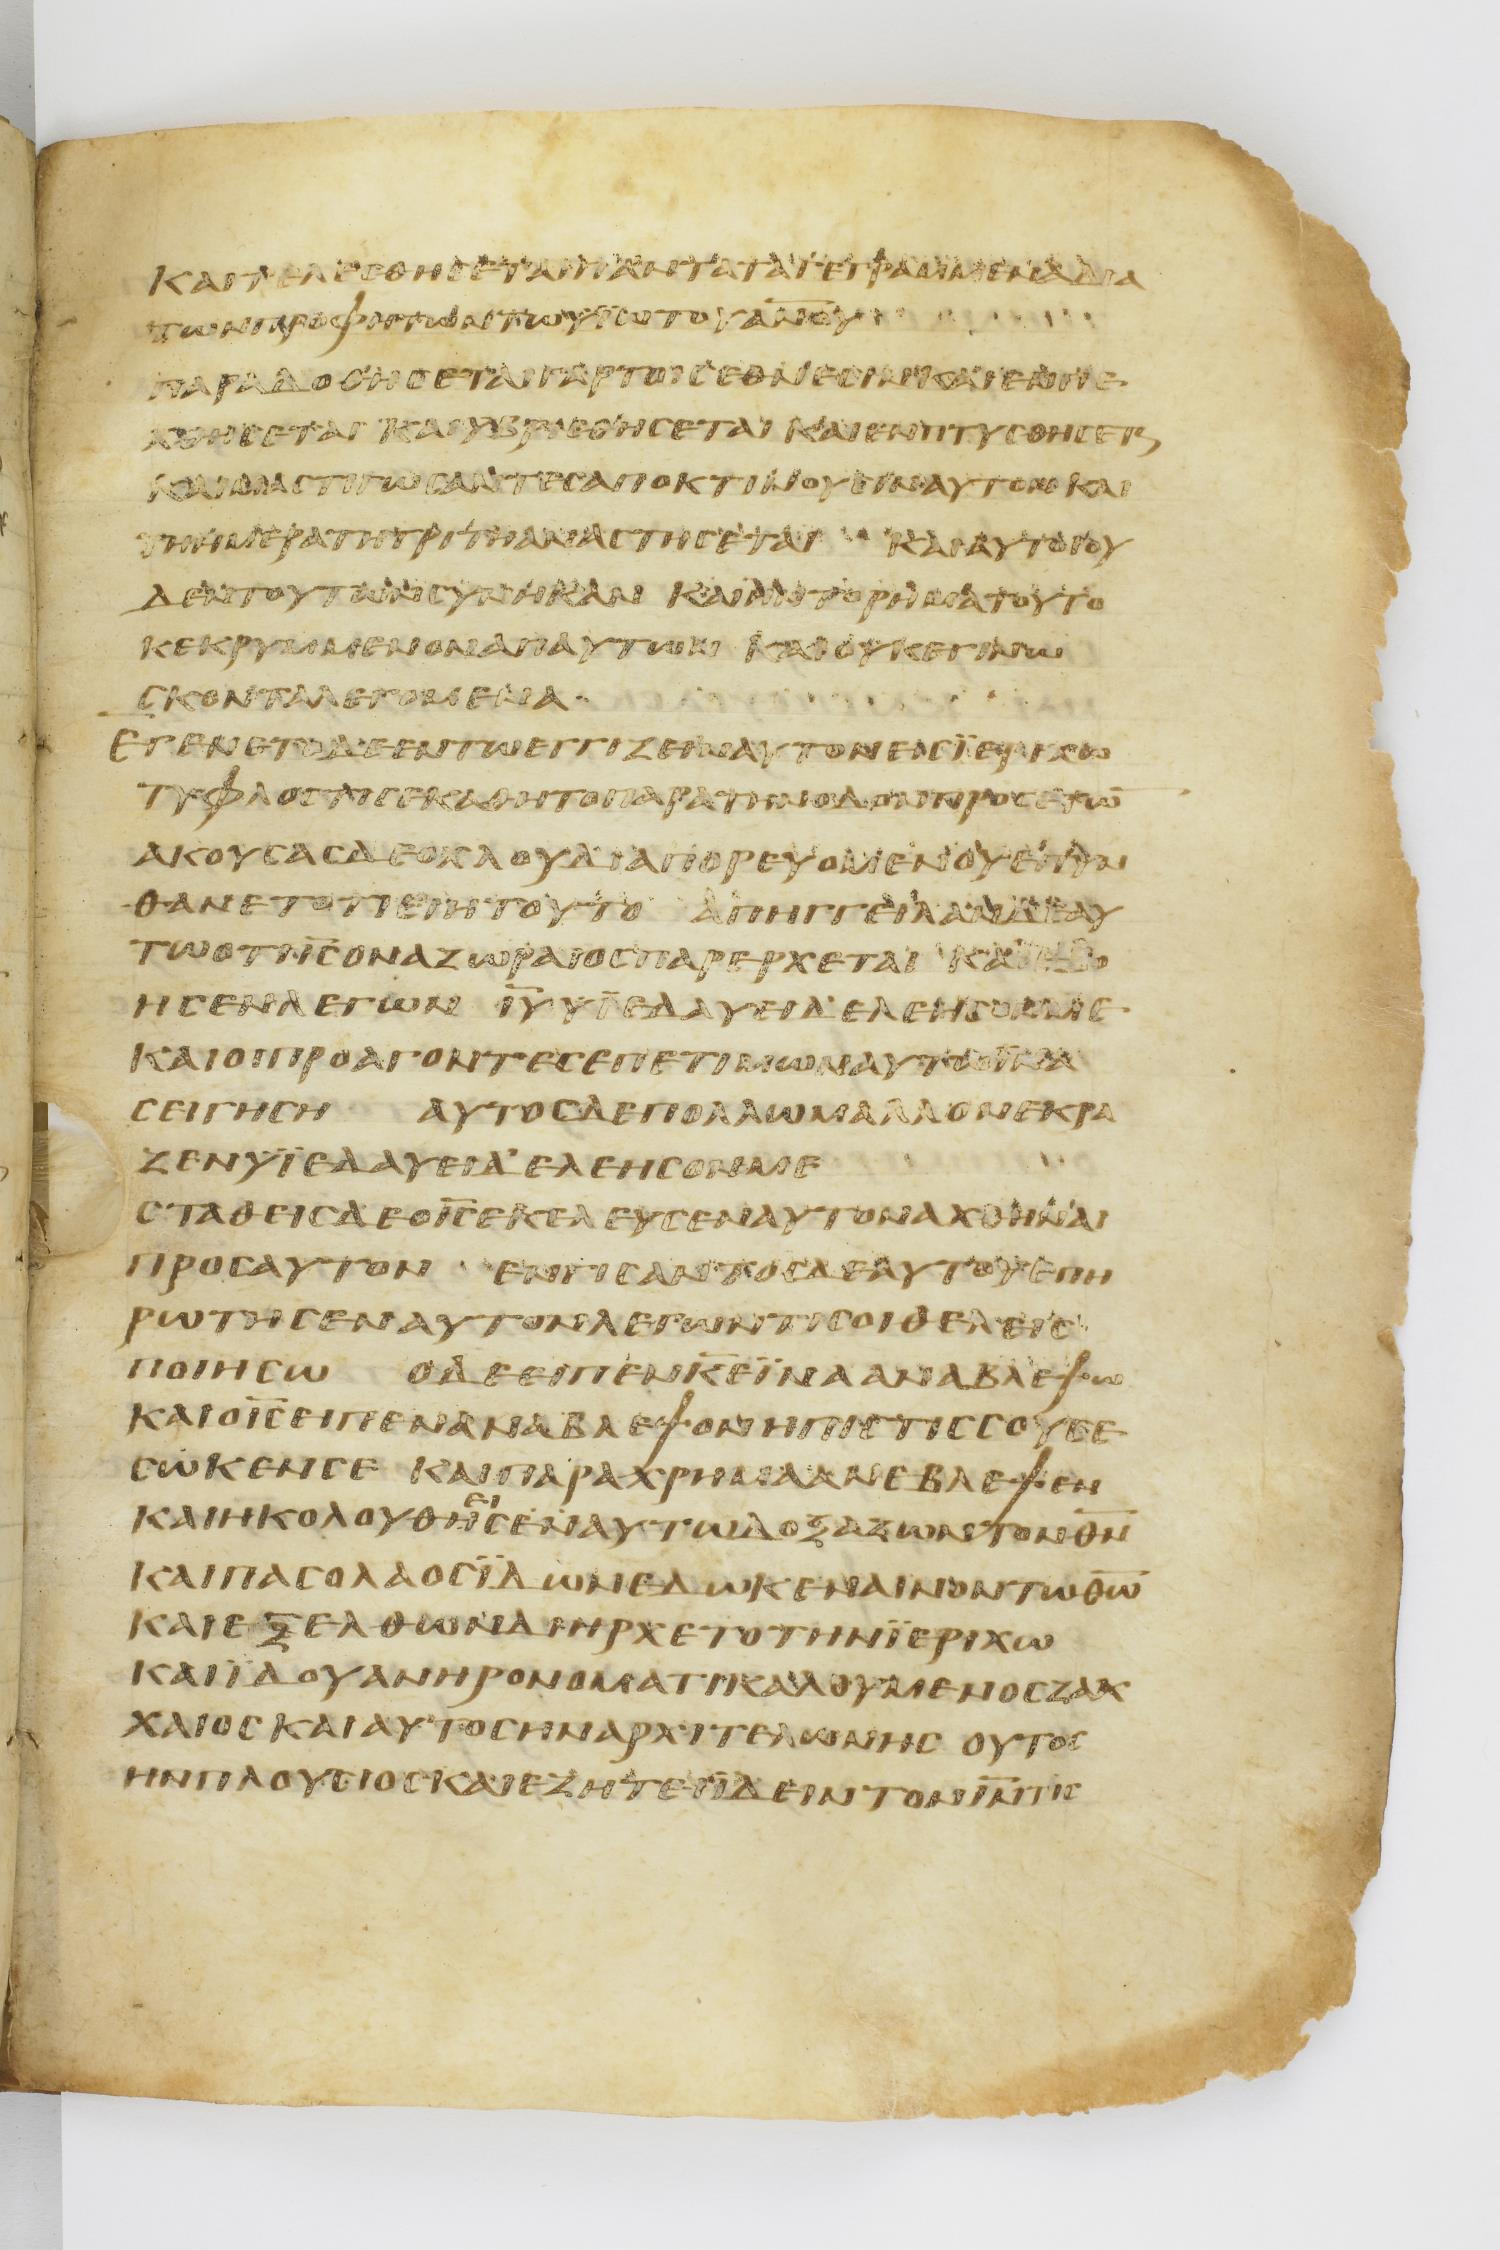 ΚΑΙΤΕΛΕΣΘΗΣΕΤΑΙΠΑΝΤΑΤΑΓΕΓΡΑΜΜΕΝΑΔΙΑ
ΤΩΝΠΡΟΦΗΤΩΝΤΩΥΪΩΤΟΥΑΝΟΥ
ΠΑΡΑΔΟΘΗΣΕΤΑΙΓΑΡΤΟΙΣΕΘΝΕΣΙΝΚΑΙΕΜΠΕ
ΧΘΗΣΕΤΑΙ ΚΑΙΥΒΡΙΣΘΗΣΕΤΑΙ ΚΑΙΕΜΠΤΥΣΘΗΣΕΤΑΙ
ΚΑΙΜΑΣΤΙΓΩΣΑΝΤΕΣΑΠΟΚΤΙΝΟΥΣΙΝΑΥΤΟΝΚΑΙ
ΤΗΗΜΕΡΑΤΗΤΡΙΤΗΑΝΑΣΤΗΣΕΤΑΙ ΚΑΙΑΥΤΟΙΟΥ
ΔΕΝΤΟΥΤΩΝΣΥΝΗΚΑΝ ΚΑΙΗΝΤΟΡΗΜΑΤΟΥΤΟ
ΚΕΚΡΥΜΜΕΝΟΝΑΠΑΥΤΩΝ ΚΑΙΟΥΚΕΓΙΝΩ
ΣΚΟΝΤΑΛΕΓΟΜΕΝΑ
ΕΓΕΝΕΤΟΔΕΕΝΤΩΕΓΓΙΖΕΙΝΑΥΤΟΝΕΙΣΪΕΡΙΧΩ
ΤΥΦΛΟΣΤΙΣΕΚΑΘΗΤΟΠΑΡΑΤΗΝΟΔΟΝΠΡΟΣΕΤΩ̅
ΑΚΟΥΣΑΣΔΕΟΧΛΟΥΔΙΑΠΟΡΕΥΟΜΕΝΟΥΕΠΥΝ
ΘΑΝΕΤΟΤΙΕΙΗΤΟΥΤΟ ΑΠΗΓΓΕΙΛΑΝΔΕΑΥ
ΤΩΟΤΙΙ̅Σ̅ΟΝΑΖΩΡΑΙΟΣΠΑΡΕΡΧΕΤΑΙ ΚΑΙΕΒΟ
ΗΣΕΝΛΕΓΩΝ Ι̅Υ̅ΥΪΕΔΑΥΕΙΔ'ΕΛΕΗΣΟΝΜΕ
ΚΑΙΟΙΠΡΟΑΓΟΝΤΕΣΕΠΕΤΙΜΩΝΑΥΤΩΪΝΑ
ΣΕΙΓΗΣΗ ΑΥΤΟΣΔΕΠΟΛΛΩΜΑΛΛΟΝΕΚΡΑ
ΖΕΝΥΪΕΔΑΥΕΙΔ'ΕΛΕΗΣΟΝΜΕ
ΣΤΑΘΕΙΣΔΕΟΙ̅Σ̅ΕΚΕΛΕΥΣΕΝΑΥΤΟΝΑΧΘΗΝΑΙ
ΠΡΟΣΑΥΤΟΝ ΕΝΓΙΣΑΝΤΟΣΔΕΑΥΤΟΥΕΠΗ
ΡΩΤΗΣΕΝΑΥΤΟΝΛΕΓΩΝΤΙΣΟΙΘΕΛΕΙΣ
ΠΟΙΗΣΩ ΟΔΕΕΙΠΕΝΚ̅Ε̅ΪΝΑΑΝΑΒΛΕΨΩ
ΚΑΙΟΙ̅Σ̅ΕΙΠΕΝΑΝΑΒΛΕΨΟΝΗΠΙΣΤΙΣΣΟΥΣΕ
ΣΩΚΕΝΣΕ ΚΑΙΠΑΡΑΧΡΗΜΑΑΝΕΒΛΕΨΕΝ
ΚΑΙΗΚΟΛΟΥΘΗΣΕΝΑΥΤΩΔΟΞΑΖΩΝΤΟΝΘ̅Ν̅
ΚΑΙΠΑΣΟΛΑΟΣΪΔΩΝΕΔΩΚΕΝΑΙΝΟΝΤΩΘ̅Ω̅
ΚΑΙΕΞΕΛΘΩΝΔΙΗΡΧΕΤΟΤΗΝΪΕΡΙΧΩ
ΚΑΙΪΔΟΥΑΝΗΡΟΝΟΜΑΤΙΚΑΛΟΥΜΕΝΟΣΖΑΚ
ΧΑΙΟΣΚΑΙΑΥΤΟΣΗΝΑΡΧΙΤΕΛΩΝΗΣ ΟΥΤΟΣ
ΗΝΠΛΟΥΣΙΟΣΚΑΙΕΖΗΤΕΙΪΔΕΙΝΤΟΝΙ̅Ν̅ΤΙΣ